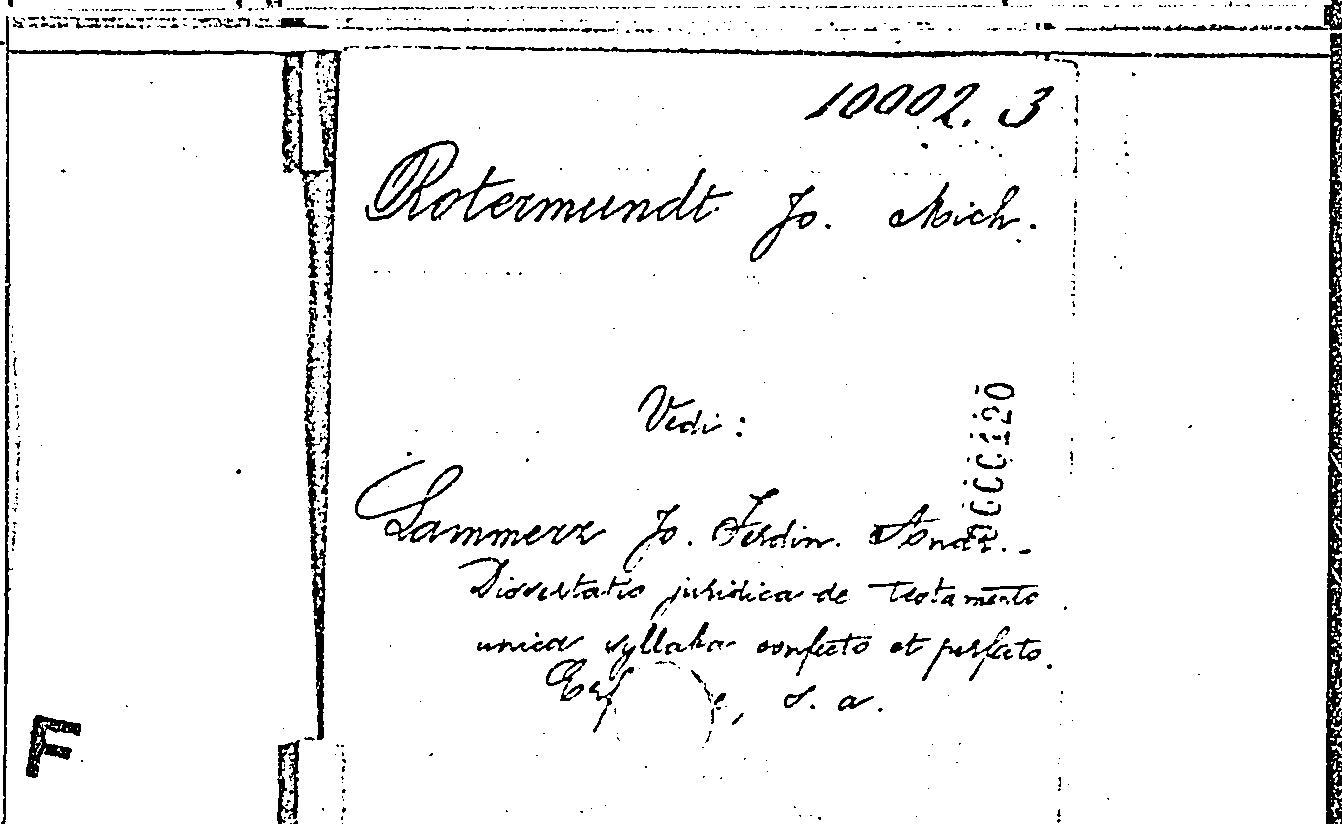 10002. 3
Rotermundt Jo. Mich.
Vedi:
Lammerz Jo. Ferdin. Andr. -
Dissertatio juridica de testamento
unica syllaba confecto et perfecto.
s. a.
F